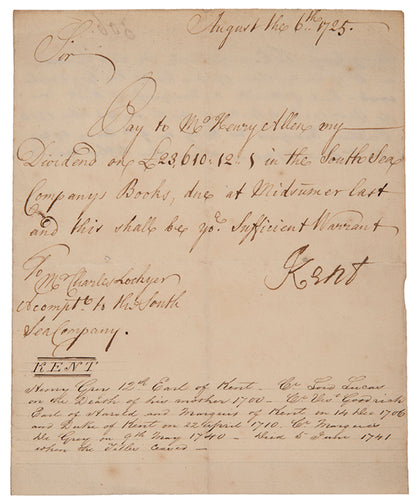 August the 6th. 1725.
Sir
Pay to Mr Henry Allen my
Dividend on £23,610:12:1 in the South Sea
Companys Books, due at Midsumer last
and this shall be yor. Sufficient Warrant
To Mr Charles Lockyer
Accomptt. to the South
Sea Company.
Kent
KENT
Henry Grey 12th Earl of Kent – Cr. Lord Lucas
on the Death of his mother 1700 – Cr. Visct. Goodrich
Earl of Harold and Marquis of Kent on 14 Dec 1706
and Duke of Kent on 22 April 1710. Cr. Marquis
De Grey on 9th May 1740 – Died 5 June 1741
when the Titles ceased –